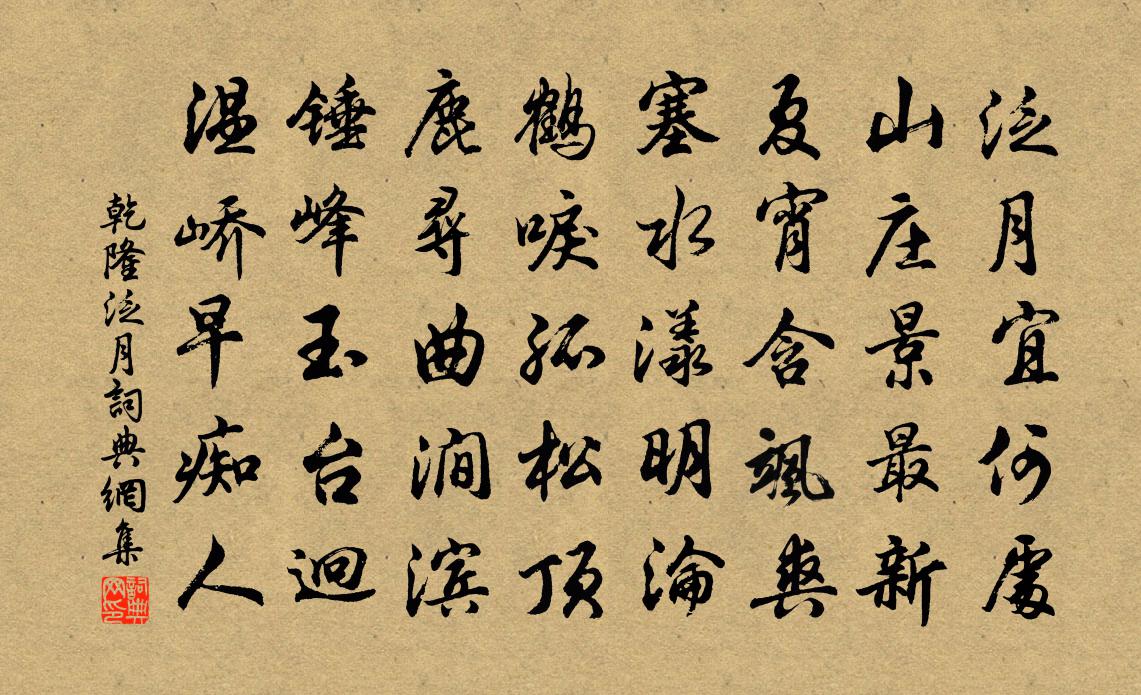 泛月宜何處
山庄景最新
夏宵含颯爽
塞水漾明淪
鶴唳孤松頂
鹿尋曲澗濱
錘峰玉台迥
温嶠早痴人
乾隆泛月詞典網集
詞典网印